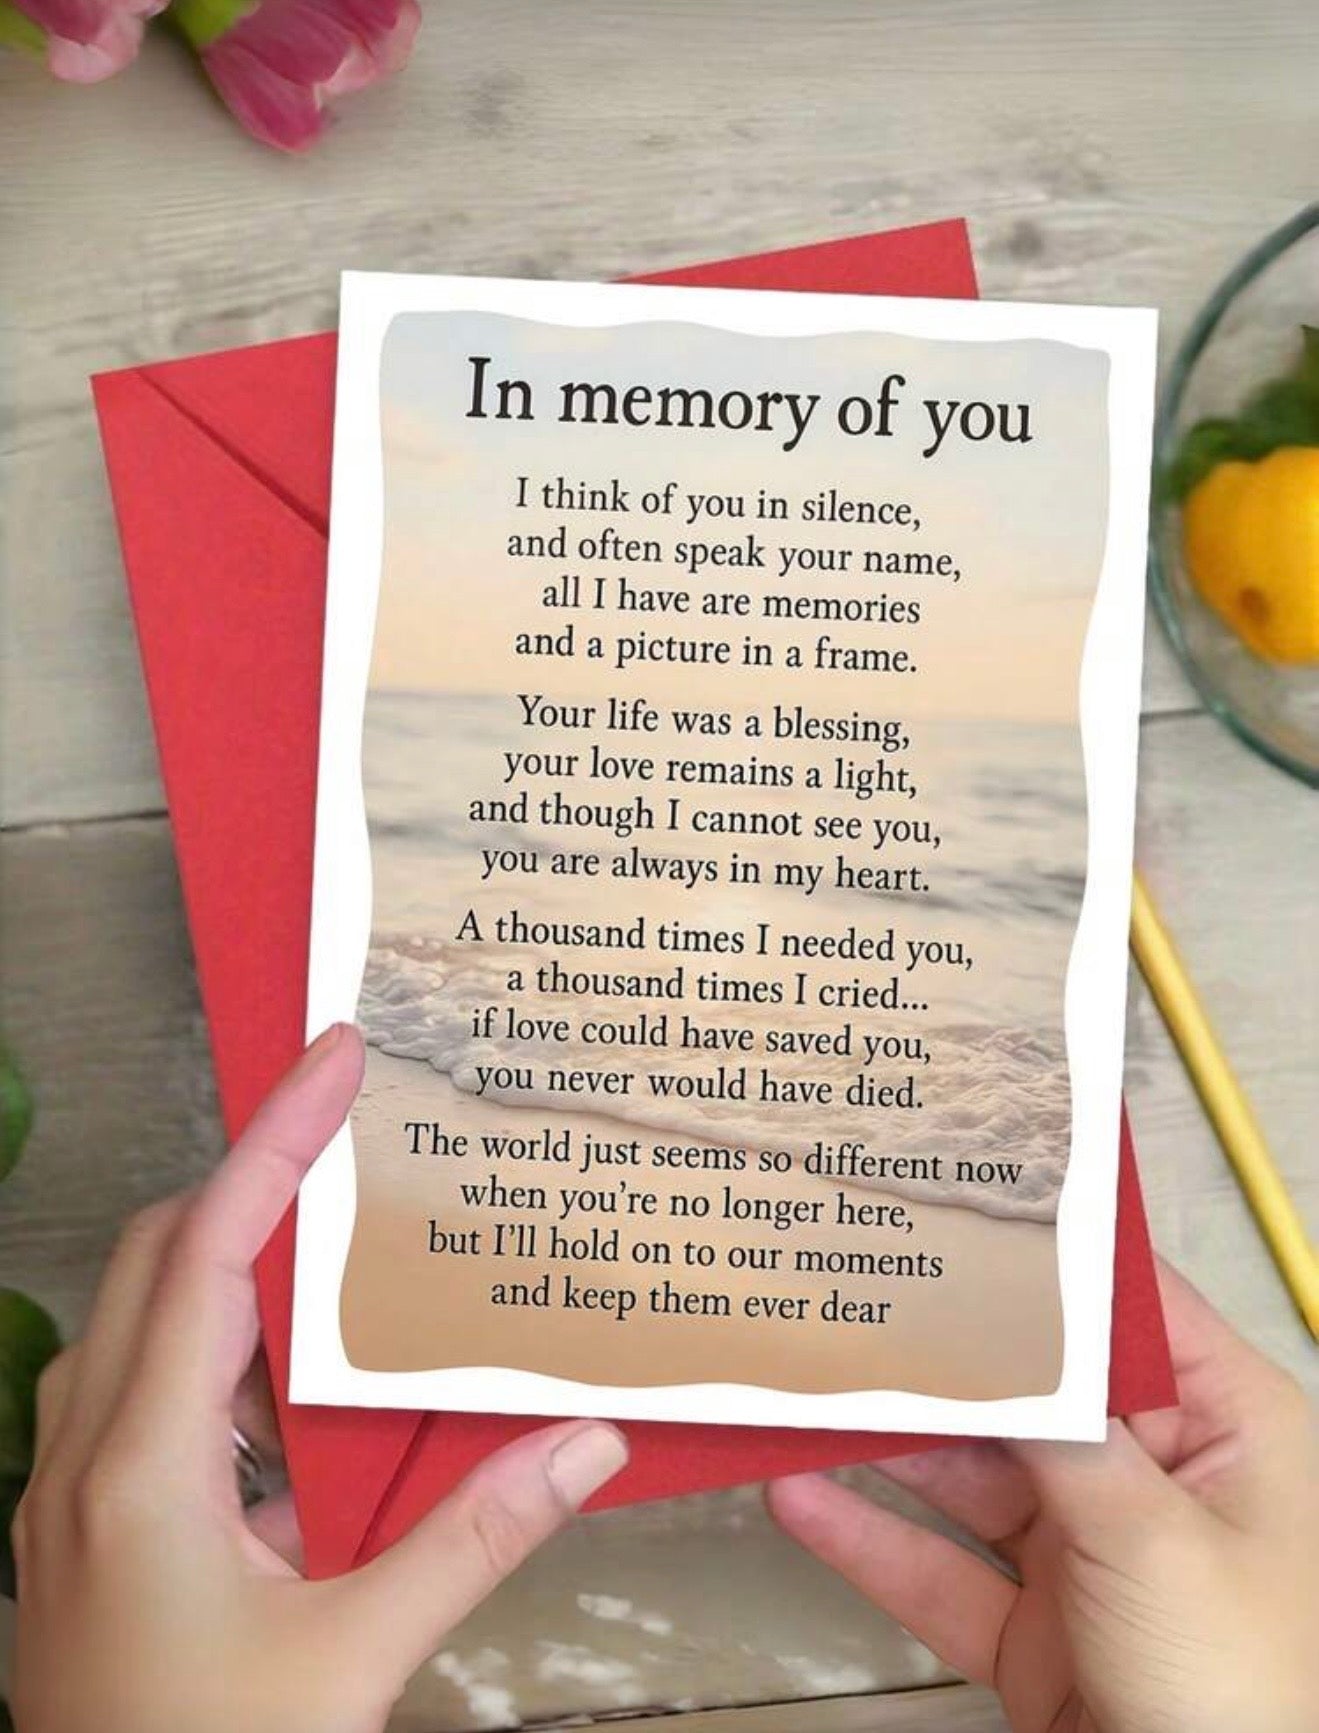 In memory of you
I think of you in silence,
and often speak your name,
all I have are memories
and a picture in a frame.
Your life was a blessing,
your love remains a light,
and though I cannot see you,
you are always in my heart.
A thousand times I needed you,
a thousand times I cried...
if love could have saved you,
you never would have died.
The world just seems so different now
when you're no longer here,
but I'll hold on to our moments
and keep them ever dear